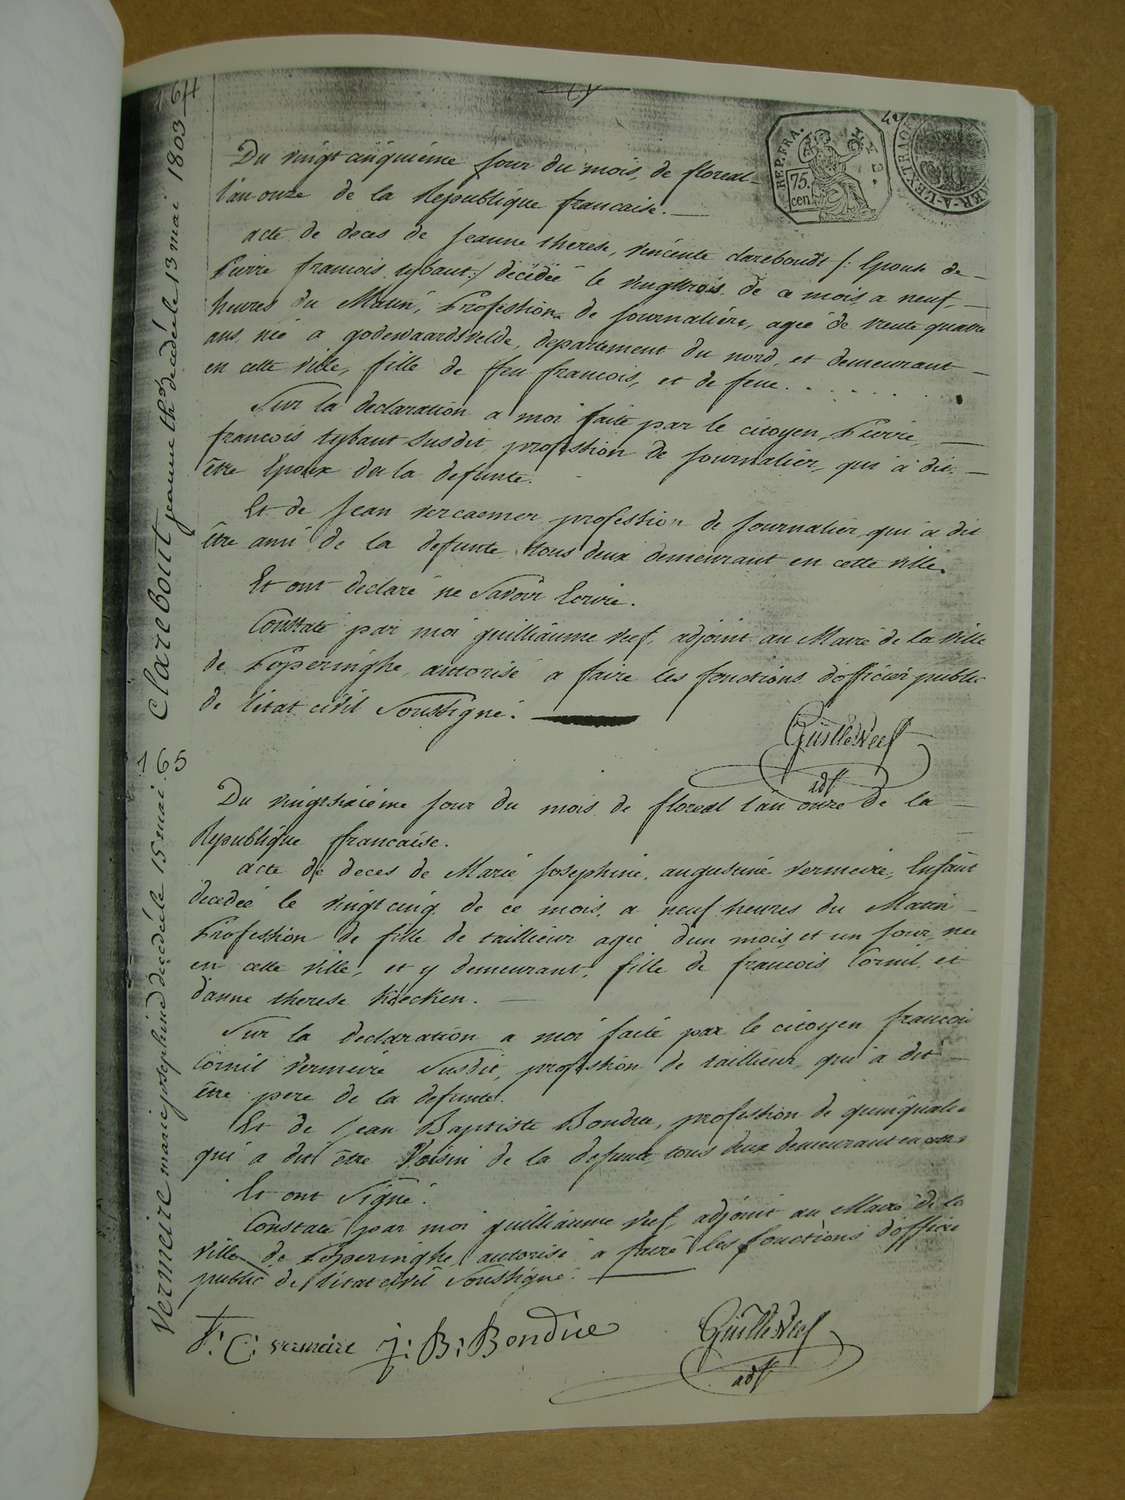 164
Clarebout jeanne thse décédée le 13 mai 1803
REP. FRA.
75.
cen
Du vingt cinquieme jour du mois de floreal
l'an onze de la Republique francaise.
acte de deces de Jeanne therese, vincente clareboudt /: Epouse de
Pierre francois tybaut :/ décédée le vingttrois de ce mois a neuf
heures du Matin, Profession de journaliere, agée de trente quatre
ans, née a godewaardsvelde, departement du nord, et demeurant
en cette ville, fille de feu francois, et de feue . . . . . .
Sur la declaration a moi faite par le citoyen Pierre
francois tybaut susdit, profession de journalier, qui a dit
être Epoux de la defunte.
Et de Jean vercaemer profession de journalier qui a dit
être ami de la defunte tous deux demeurant en cette ville.
Et ont declaré ne savoir Ecrire.
Constaté par moi guilliaume neef, adjoint au Maire de la ville
de Poperinghe, autorisé a faire les fonctions d'officier public
de l'état civil Soussigné.
Guille Neef
adjt
165
Vermeire marie josephine décédée le 15 mai
Du vingtsixiéme jour du mois de floreal l'an onze de la
Republique francaise.
acte de deces de Marie Josephine, augustine vermeire, Enfant
decedée le vingt cinq de ce mois a neuf heures du Matin
Profession de fille de taillieur agée d'un mois et un jour, née
en cette ville, et y demeurant, fille de francois Cornil, et
d'anne therese
Sur la declaration a moi faite par le citoyen francois
Cornil Vermeire Susdit, profession de taillieur, qui a dit
être pere de la defunte.
Et de Jean Baptiste Bondue, profession de
qui a dit être Voisin de la defunte tous deux demeurant en cette
Et ont Signé.
Constaté par moi guilliaume neef, adjoint au Maire de la
ville de Poperinghe, autorisé a faire les fonctions d'officier
public de l'état civil Soussigné.
F: C: vermeire J: B: Bondue
Guille Neef
adjt